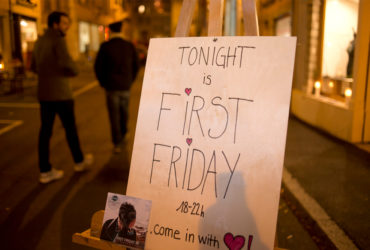 TONIGHT
is
FIRST
FRIDAY
18-22h
.come in with ♥!